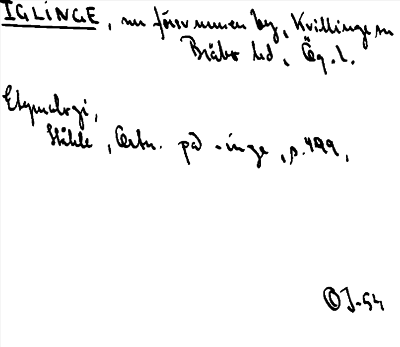 IGLINGE, nu försvunnen by, Kvillinge sn
Bråbo hd, Ög. l.
Etymologi,
Ståhle, Ortn. på -inge, s. 499,
OJ-54